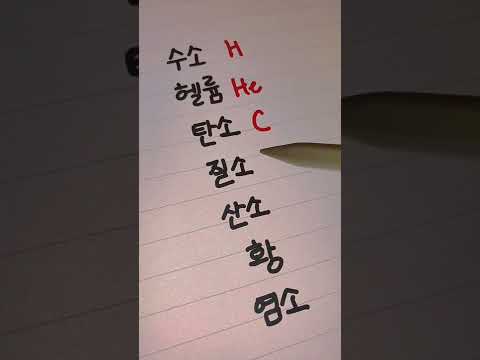 수소 H
헬륨 He
탄소 C
질소
산소
황
염소